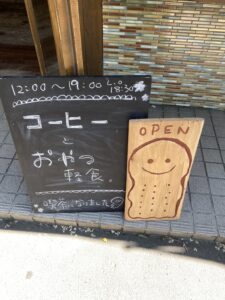 12:00〜19:00 L.O 18:30
コーヒー
と
おやつ
軽食
喫茶になりました
OPEN